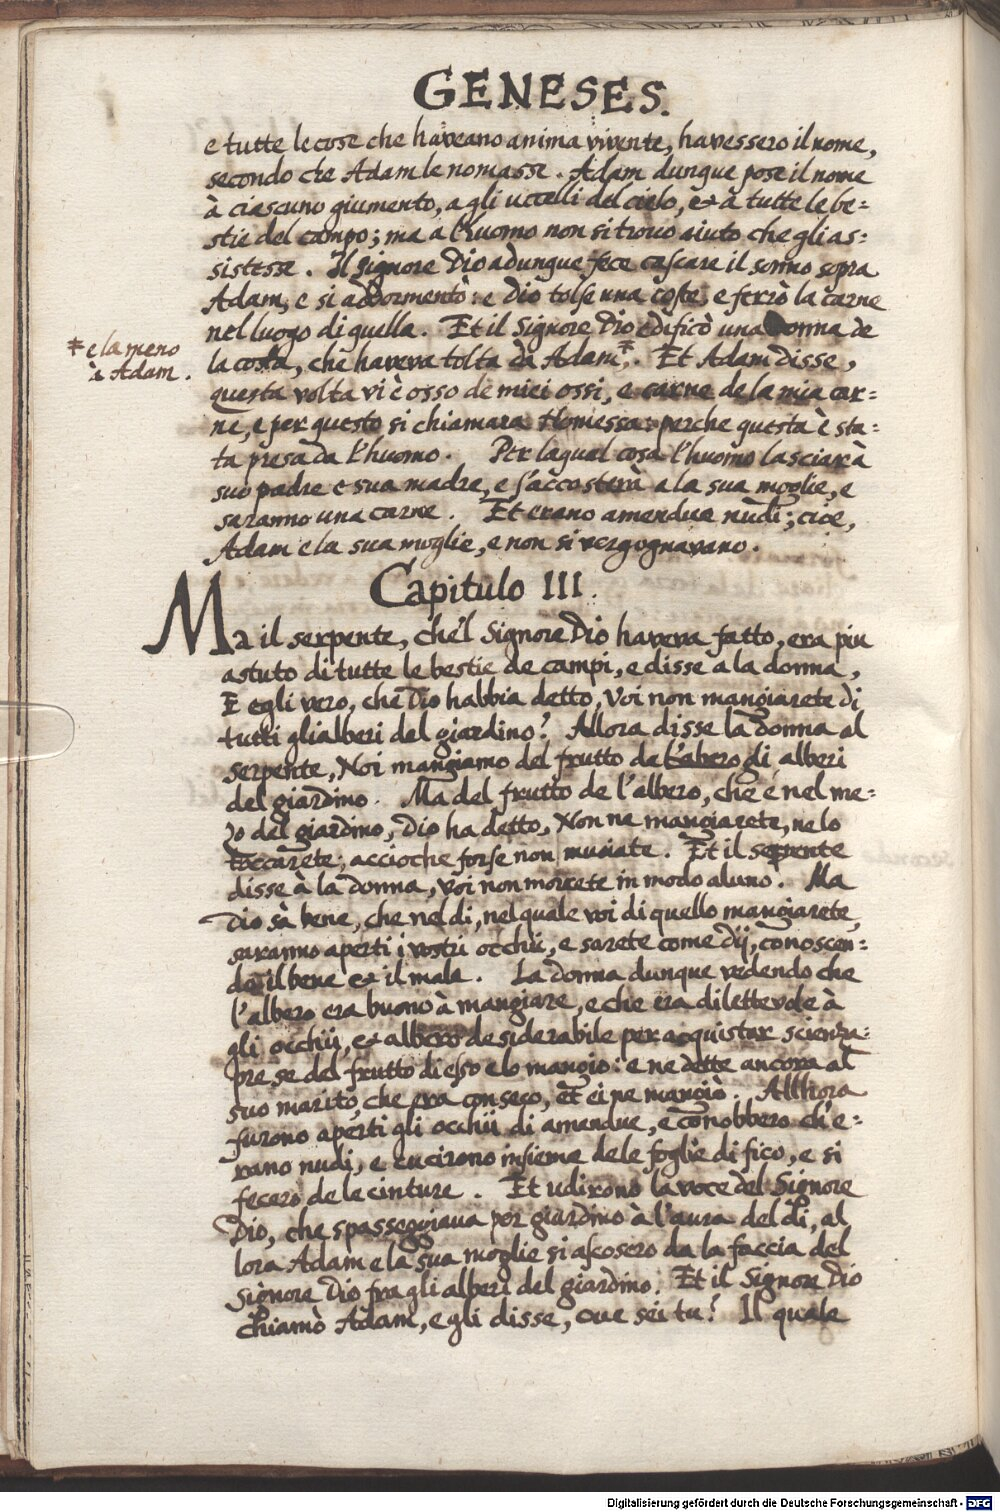 GENESES.
e tutte le cose che haveano anima vivente, havessero il nome,
secondo che Adam le nomasse. Adam dunque pose il nome
à ciascuno giumento, a gli uccelli del cielo, et à tutte le be=
stie del campo; ma a l'huomo non si trovo aiuto che gli as=
sistesse. Il Signore Dio adunque fece cascare il sonno sopra
Adam, e si addormentò: e Dio tolse una coste, e serrò la carne
nel luogo di quella. Et il Signore Dio edificò una donna de
la costa, che haveva tolta da Adam*. Et Adam disse,
* e la meno
à Adam.
questa volta vi è osso de miei ossi, e carne de la mia car=
ne, e per questo si chiamara Homessa: perche questa è sta=
ta presa da l'huomo. Per laqual cosa l'huomo lasciarà
suo padre e sua madre, e s'accosterà a la sua moglie, e
saranno una carne. Et erano amendue nudi; cioe,
Adam e la sua moglie, e non si vergognavano.
Capitulo III.
Ma il serpente, che'l Signore Dio haveva fatto, era piu
astuto di tutte le bestie de campi, e disse a la donna,
E egli vero, che Dio habbia detto, Voi non mangiarete di
tutti gli alberi del giardino? Allora disse la donna al
serpente, Noi mangiamo del frutto de gli alberi
del giardino. Ma del frutto de l'albero, che è nel me=
zo del giardino, Dio ha detto, Non ne mangiarete, ne lo
toccarete, accioche forse non muoiate. Et il serpente
disse à la donna, voi non morrete in modo aluno. Ma
Dio sà bene, che nel di, nel quale voi di quello mangiarete,
saranno aperti i vostri occhii, e sarete come dij, conoscen=
do il bene et il male. La donna dunque vedendo che
l'albero era buono à mangiare, e che era dilettevole à
gli occhii, et albero desiderabile per acquistar scienza:
prese del frutto di esso e lo mangio: e ne dette ancora al
suo marito, che era con seco, et ei ne mangiò. Allhora
furono aperti gli occhii di amendue, e conobbero ch'e=
rano nudi, e cucirono insieme dele foglie di fico, e si
fecero de le cinture. Et udirono la voce del Signore
Dio, che spasseggiava per giardino à l'aura del di, al
lora Adam e la sua moglie si ascosero da la faccia del
Signore Dio fra gli alberi del giardino. Et il Signore Dio
chiamò Adam, e gli disse, ove sei tu? Il quale
Digitalisierung gefördert durch die Deutsche Forschungsgemeinschaft - DFG